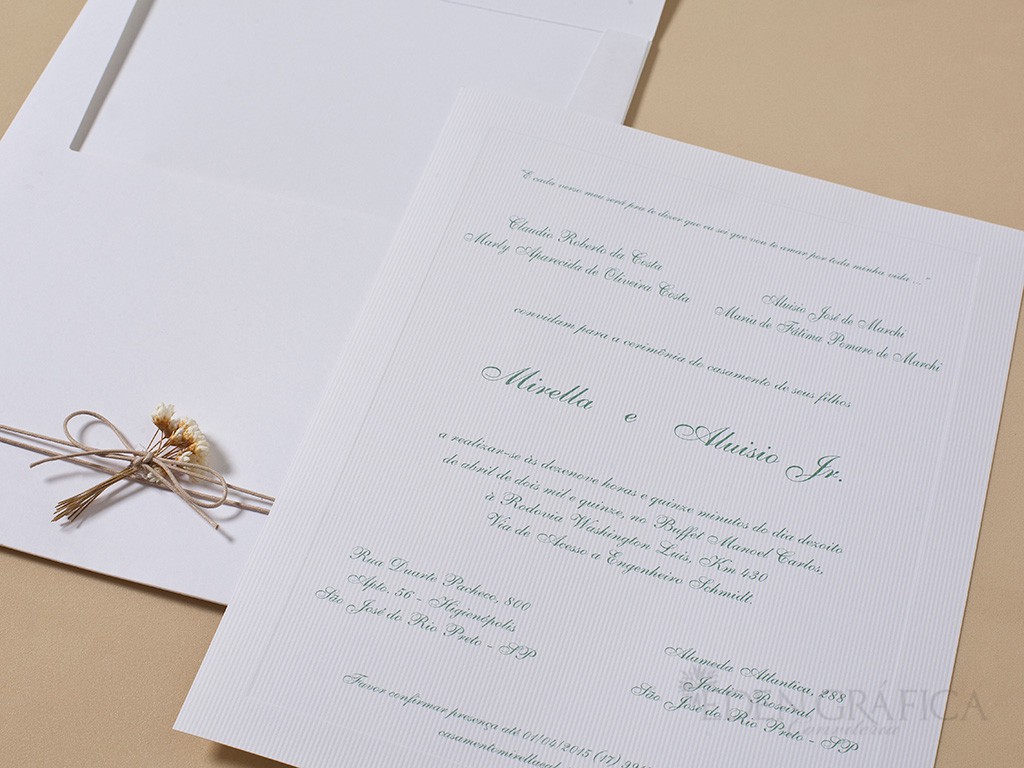 "E cada verso meu será pra te dizer que eu sei que vou te amar por toda minha vida ... "
Claudio Roberto da Costa
Marly Aparecida de Oliveira Costa
Aluisio José de Marchi
Maria de Fátima Pomaro de Marchi
convidam para a cerimônia do casamento de seus filhos
Mirella e Aluisio Jr.
a realizar-se às dezenove horas e quinze minutos do dia dezoito
de abril de dois mil e quinze, no Buffet Manoel Carlos,
à Rodovia Washington Luis, Km 430
Via de Acesso a Engenheiro Schmidt.
Rua Duarte Pacheco, 800
Apto. 56 - Higienópolis
São José do Rio Preto - SP
Alameda Atlantica, 288
Jardim Roseiral
São José do Rio Preto - SP
Favor confirmar presença até 01/04/2015 (17)
ÉDEN GRÁFICA